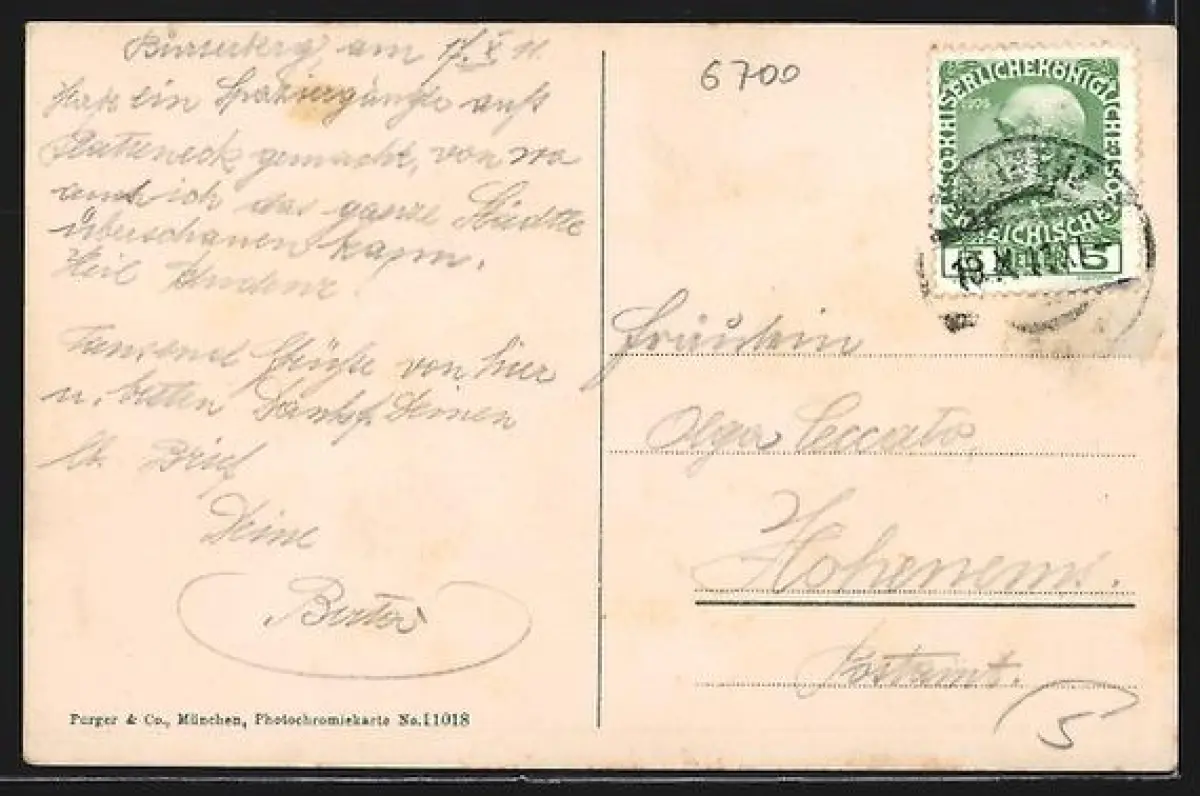 Bürserberg, am 17. X 11.
ein Spaziergängle aufs
gemacht, von wo
auch ich das ganze Städtle
überschauen kann.
Heil
Tausend Grüße von hier
u. besten Dank f. Deinen
lb. Brief
Deine
Berta
Purger & Co., München, Photochromiekarte No. 11018
6700
KAISERLICHE KÖNIGLICHE ÖSTERREICHISCHE POST
1908
5 HELLER 5
Fräulein
Olga Ceccato,
Hohenems.
Postamt.
5